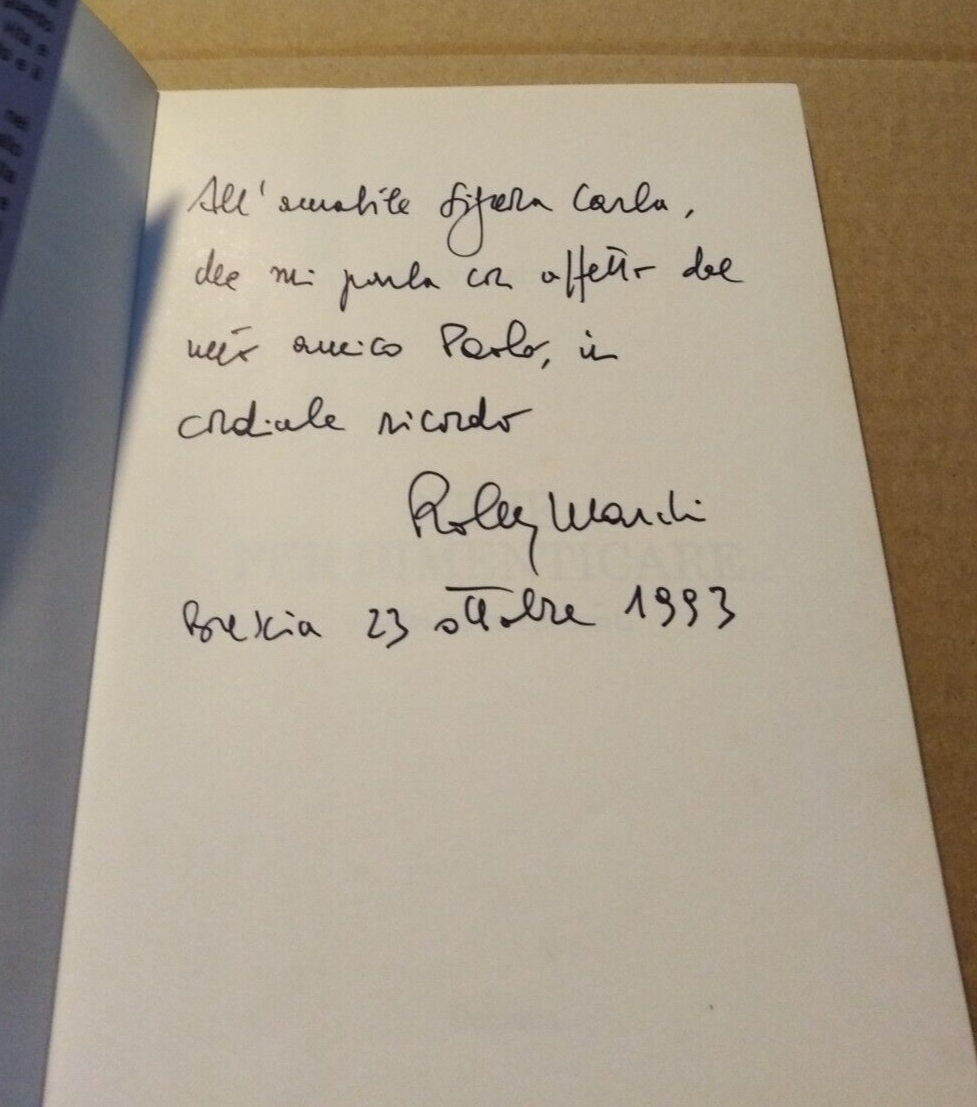 All'amabile signora Carla,
che mi parla con affetto del
mio amico Paolo, in
cordiale ricordo
Rolly Marchi
PER DIMENTICARE
Brescia 23 ottobre 1993